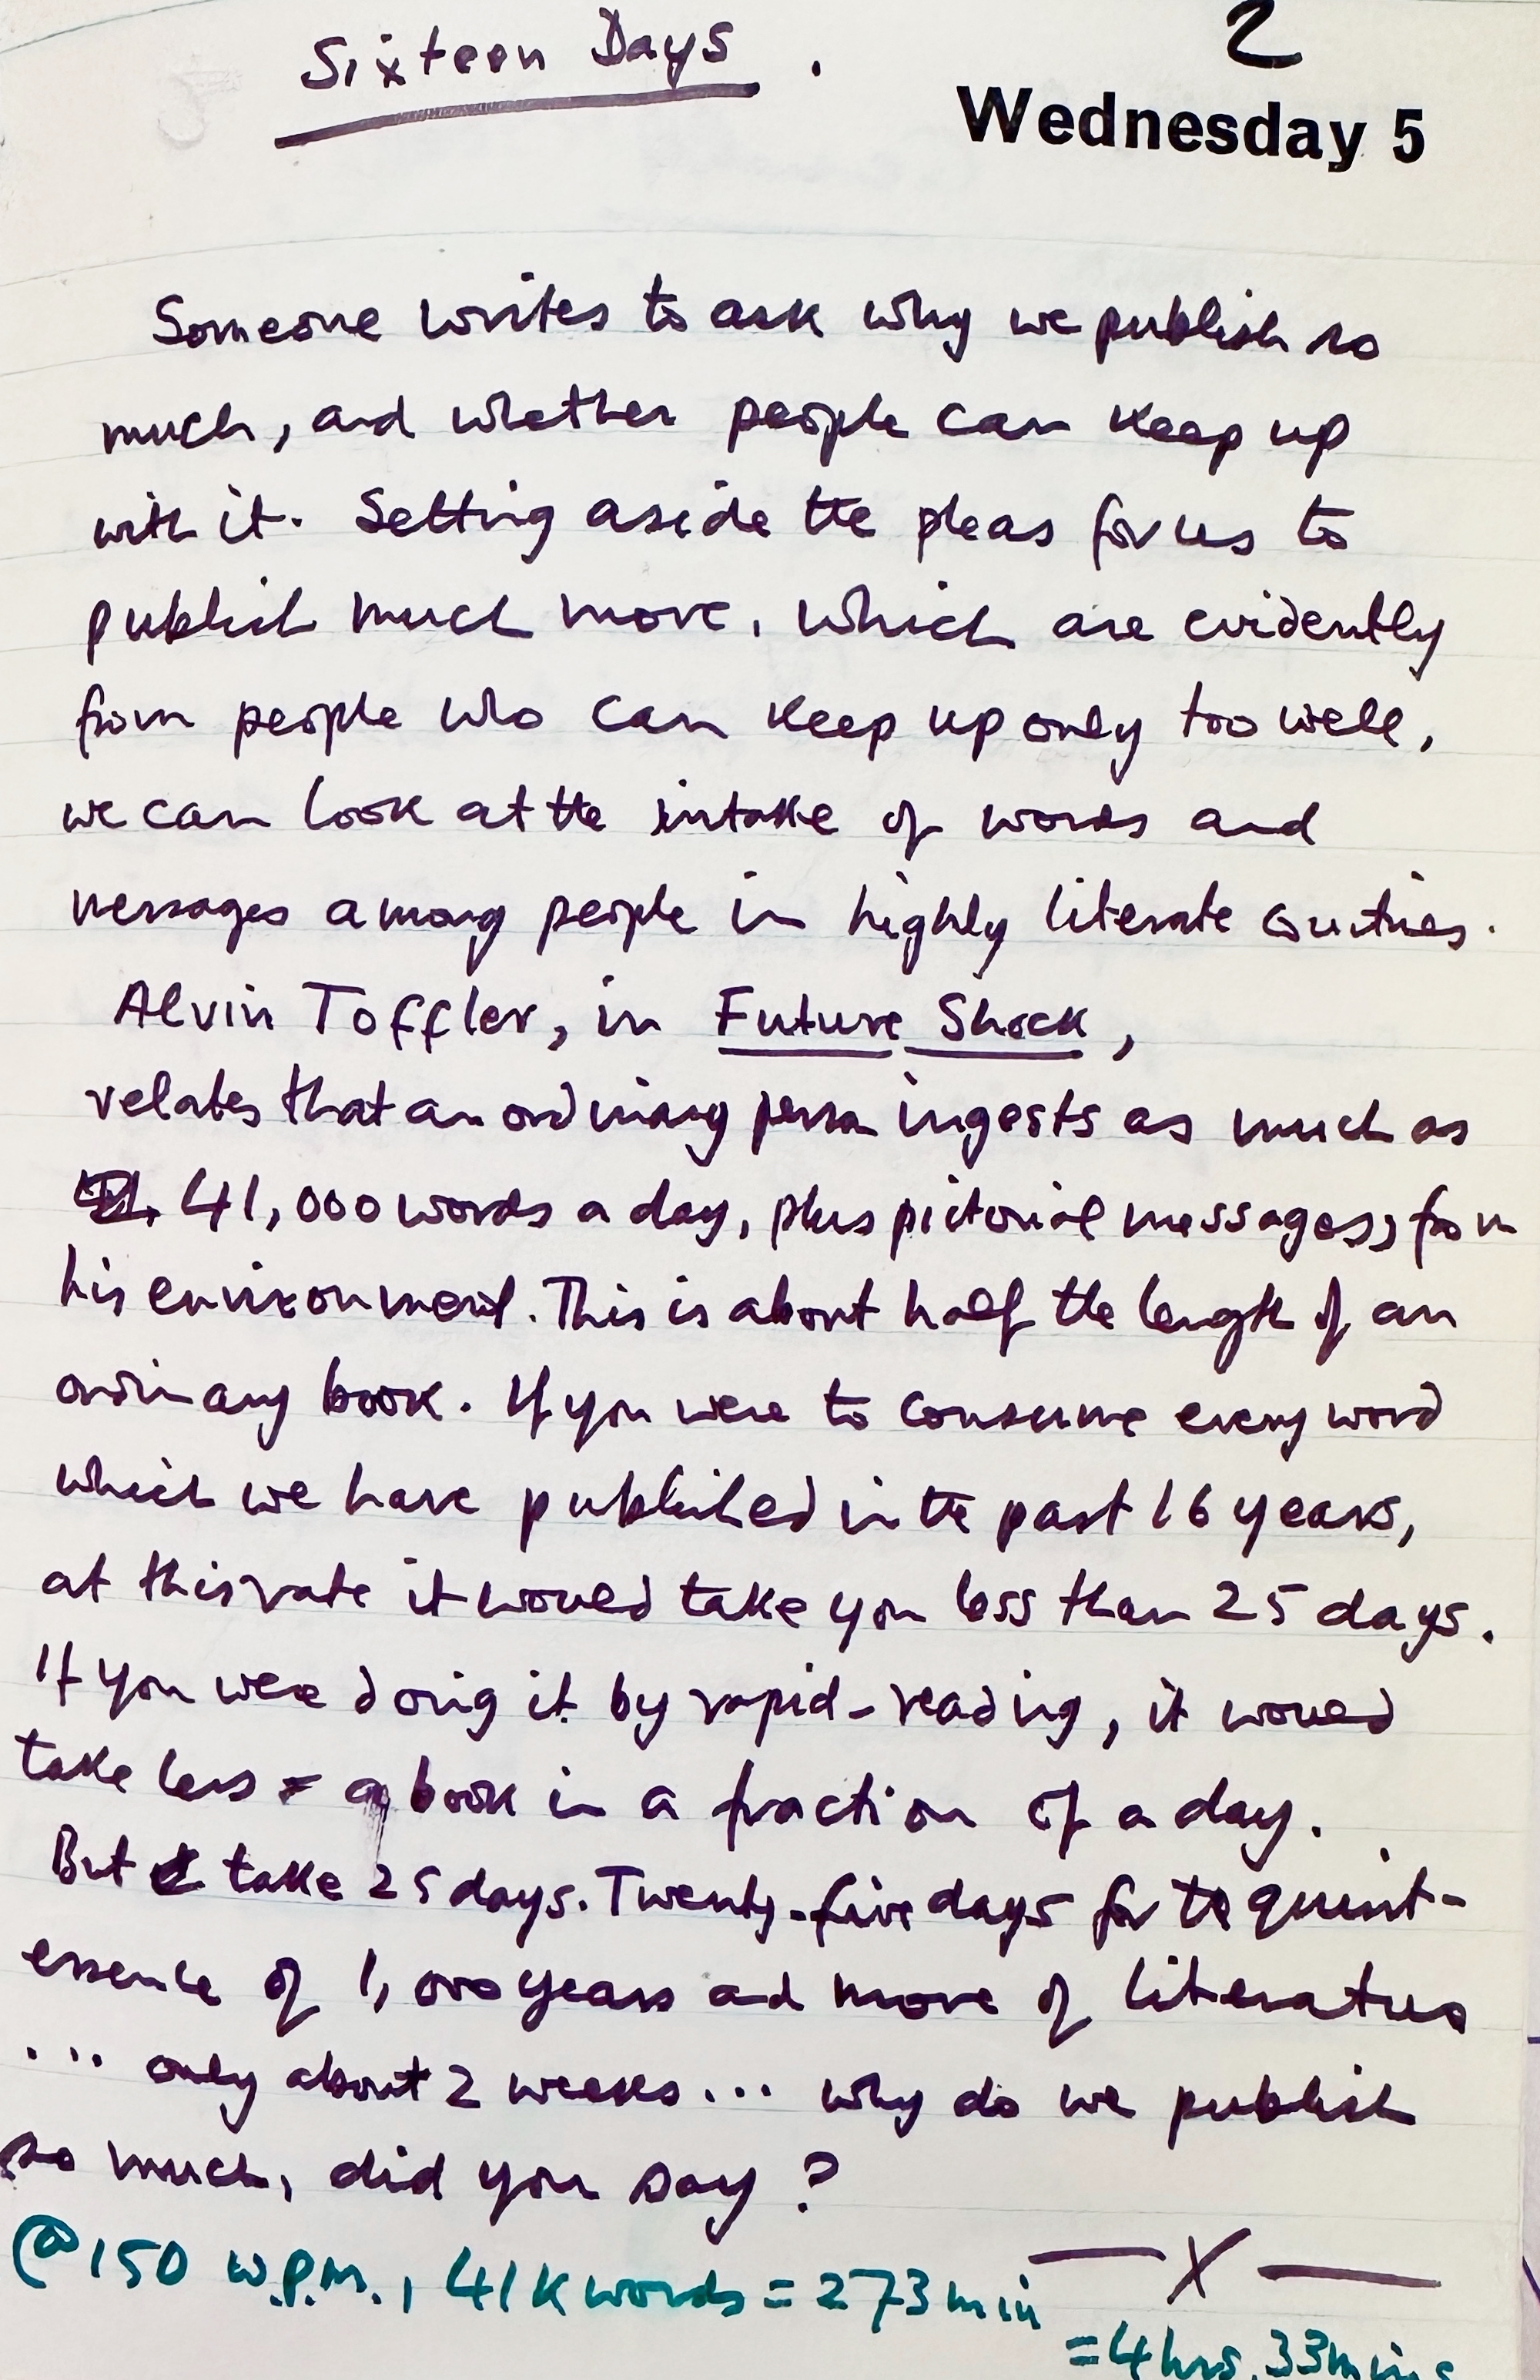 Sixteen Days.
2
Wednesday 5
Someone writes to ask why we publish so
much, and whether people can keep up
with it. Setting aside the pleas for us to
publish much more, which are evidently
from people who can keep up only too well,
we can look at the intake of words and
messages among people in highly literate countries.
Alvin Toffler, in Future Shock,
relates that an ordinary person ingests as much as
41,000 words a day, plus pictorial messages, from
his environment. This is about half the length of an
ordinary book. If you were to consume every word
which we have published in the past 16 years,
at this rate it would take you less than 25 days.
If you were doing it by rapid-reading, it would
take less = a book in a fraction of a day.
But take 25 days. Twenty-five days for the quint-
essence of 1,000 years and more of literature
... only about 2 weeks... why do we publish
so much, did you say?
— X —
@150 w.p.m., 41K words = 273 min
= 4 hrs. 33 mins